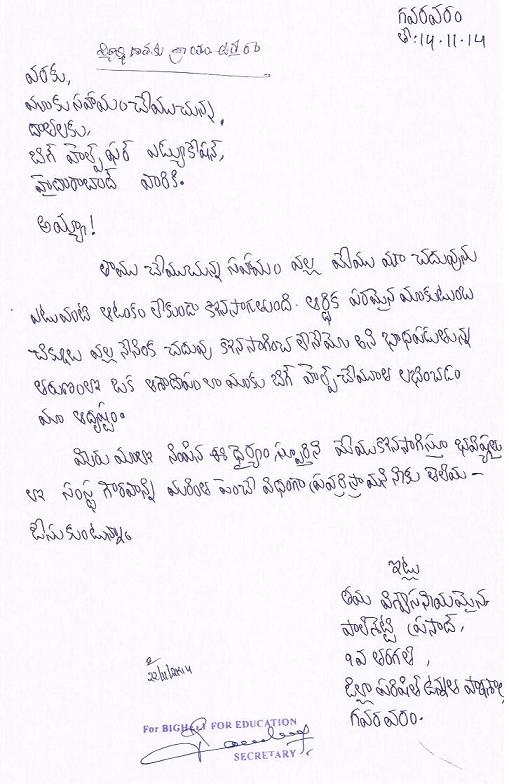 గవరవరం
తే: 14.11.14
వరకు,
మాకు సహాయం చేయుచున్న
దాతలకు,
బిగ్ హెల్ప్ ఫర్ ఎడ్యుకేషన్,
హైదరాబాద్ వారికి.
అయ్యా!
తాము చేయుచున్న సహాయం వల్ల మేము మా చదువును
ఎటువంటి ఆటంకం లేకుండా కొనసాగుతుంది. ఆర్థిక పరమైన మాకుటుంబ
చిక్కుల వల్ల నేనింక చదువు కొనసాగించ లేనేమో అని భాధపడుతున్న
తరుణంలో ఒక ఆశాదీపంలా మాకు బిగ్ హెల్ప్ చేయూత లభించడం
మా అదృష్టం.
మీరు మాలో నింపిన ఈ ధైర్యం స్ఫూర్తిని మేము కొనసాగిస్తూ భవిష్యత్తు
లో సంస్థ గౌరవాన్ని మరింత పెంచే విధంగా ప్రవర్తిస్తామని మీకు తెలియ-
జేసుకుంటున్నాం
ఇట్లు
తమ విశ్వాసనీయమైన
పాలిశెట్టి ప్రసాద్,
10వ తరగతి,
జిల్లా పరిషత్ ఉన్నత పాఠశాల,
గవరవరం.
22/11/2014
For BIGHELP FOR EDUCATION
SECRETARY